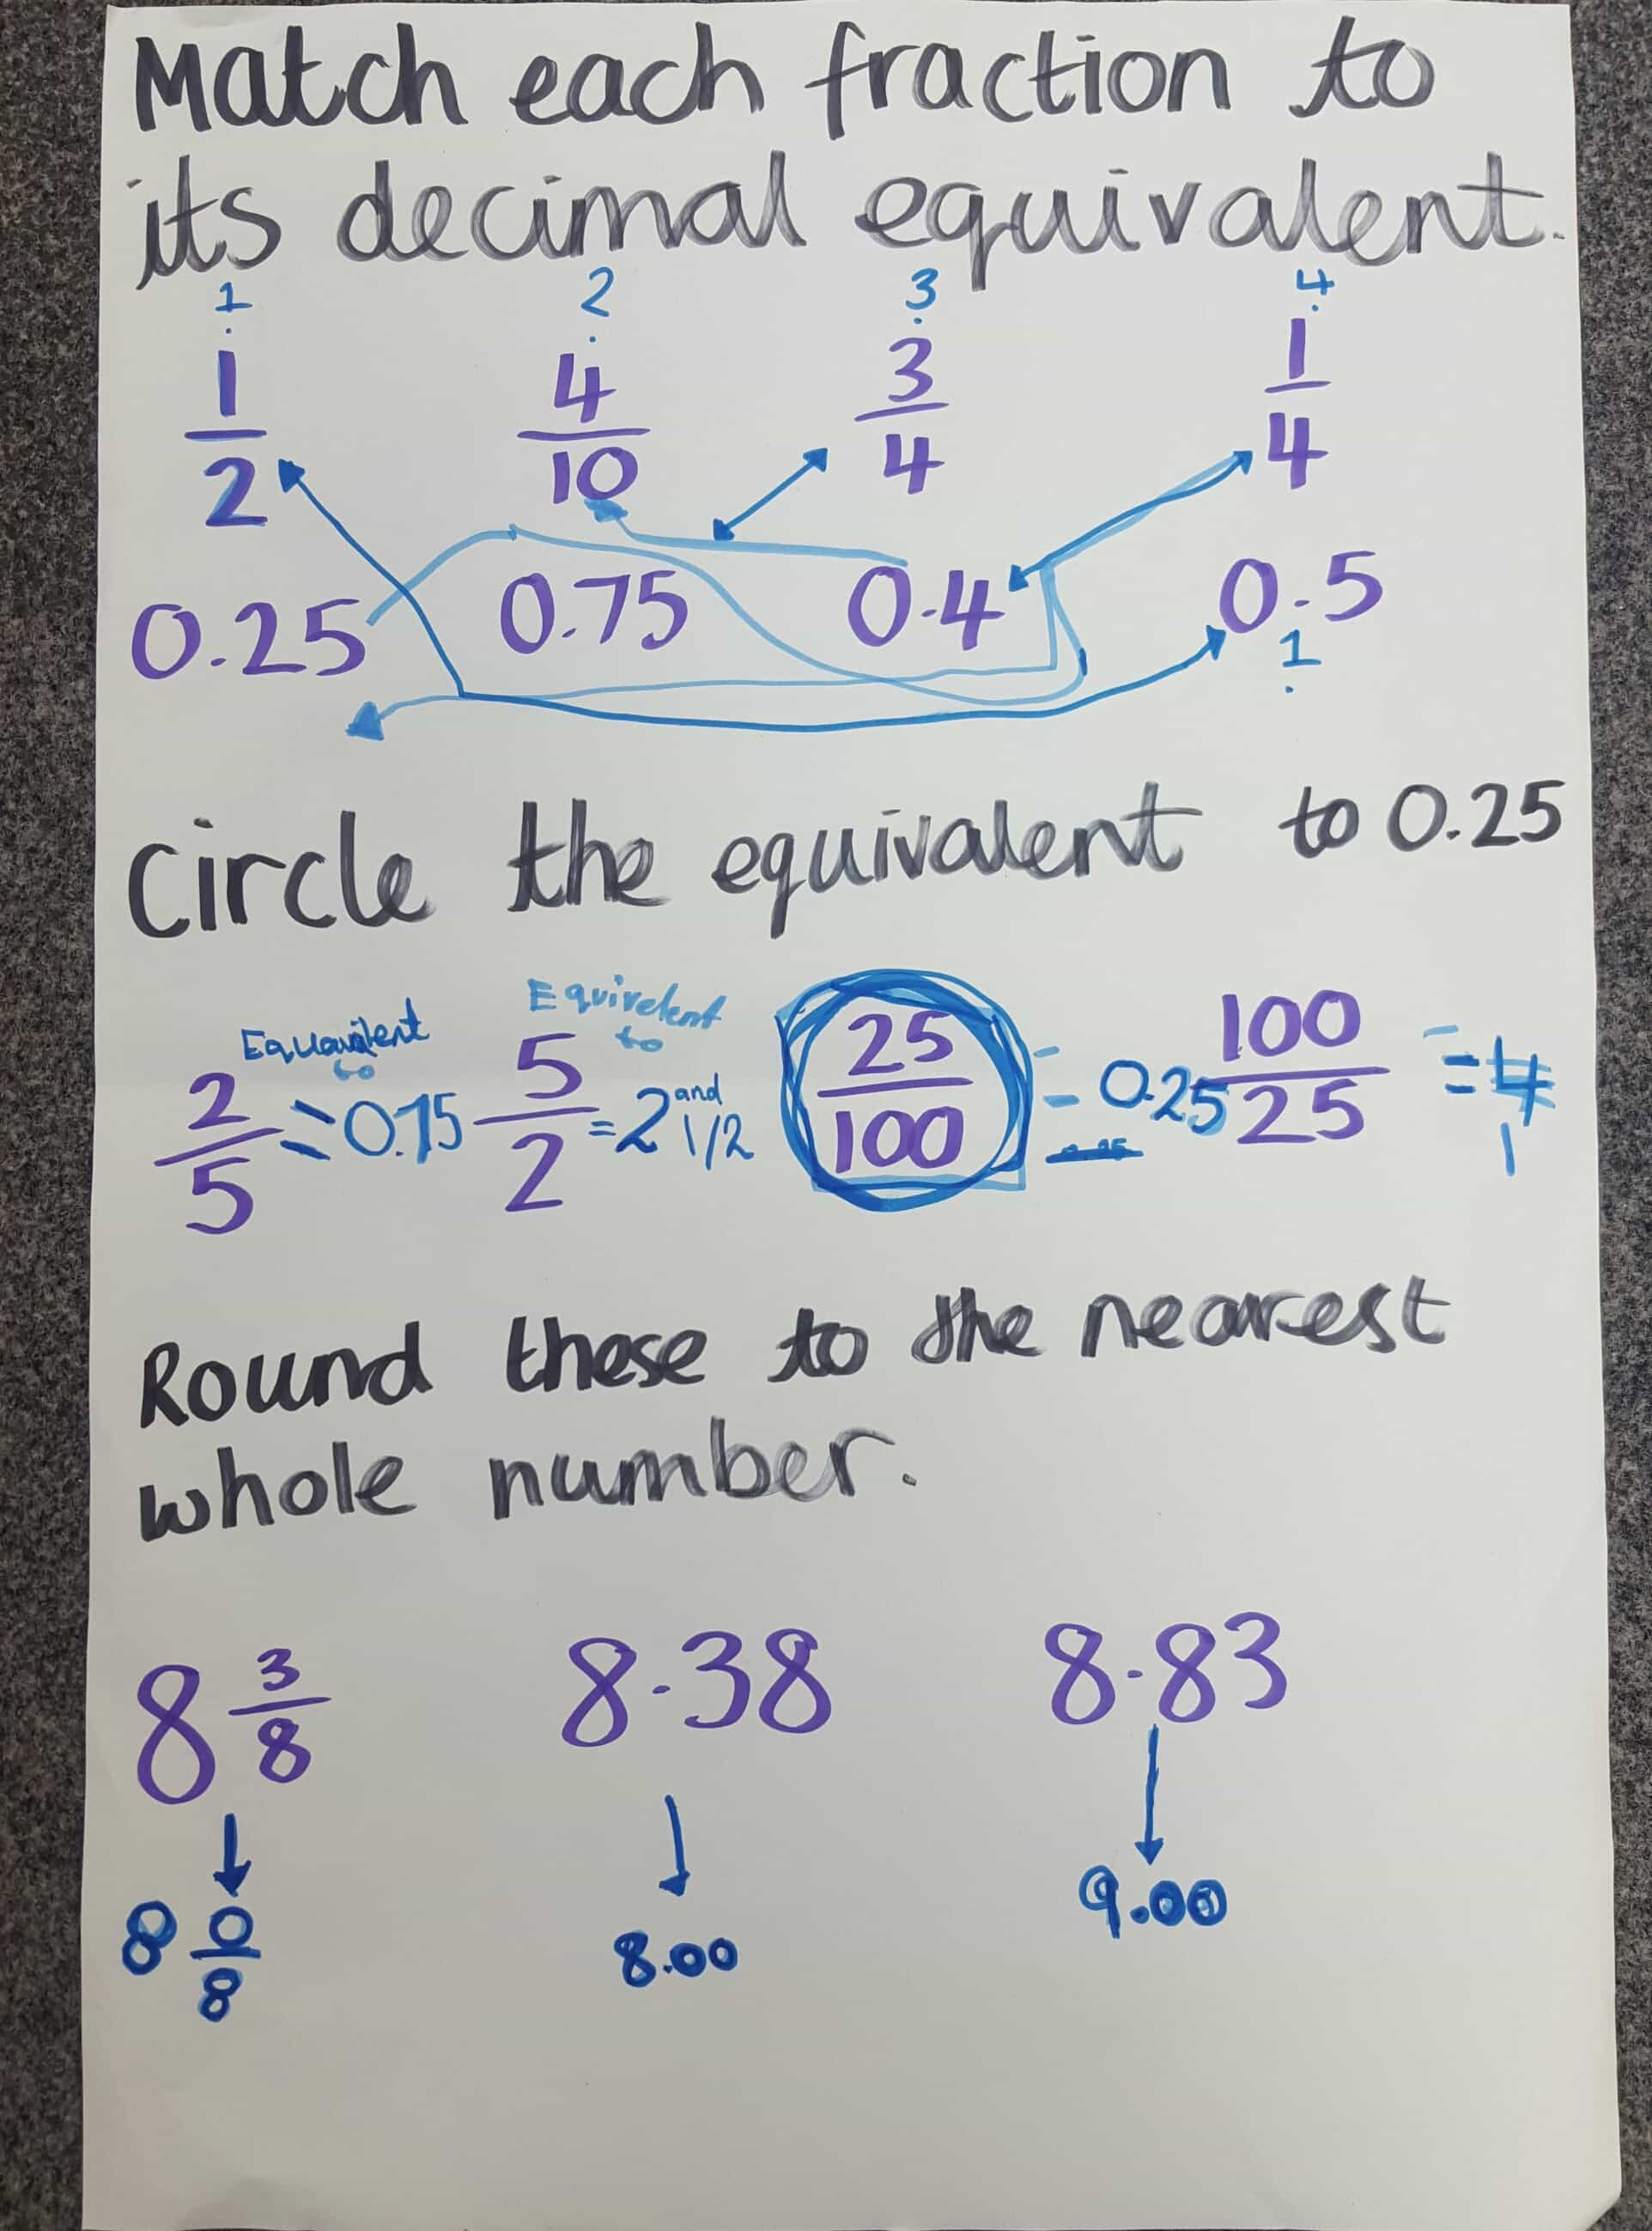 Match each fraction to
its decimal equivalent.
1. 2. 3. 4.
1/2 4/10 3/4 1/4
0.25 0.75 0.4 0.5
1.
Circle the equivalent to 0.25
Equavilent to Equivelent to
2/5 = 0.75 5/2 = 2 and 1/2 25/100 = 0.25 100/25 = 4
1
Round these to the nearest
whole number.
8 3/8 8.38 8.83
8 0/8 8.00 9.00